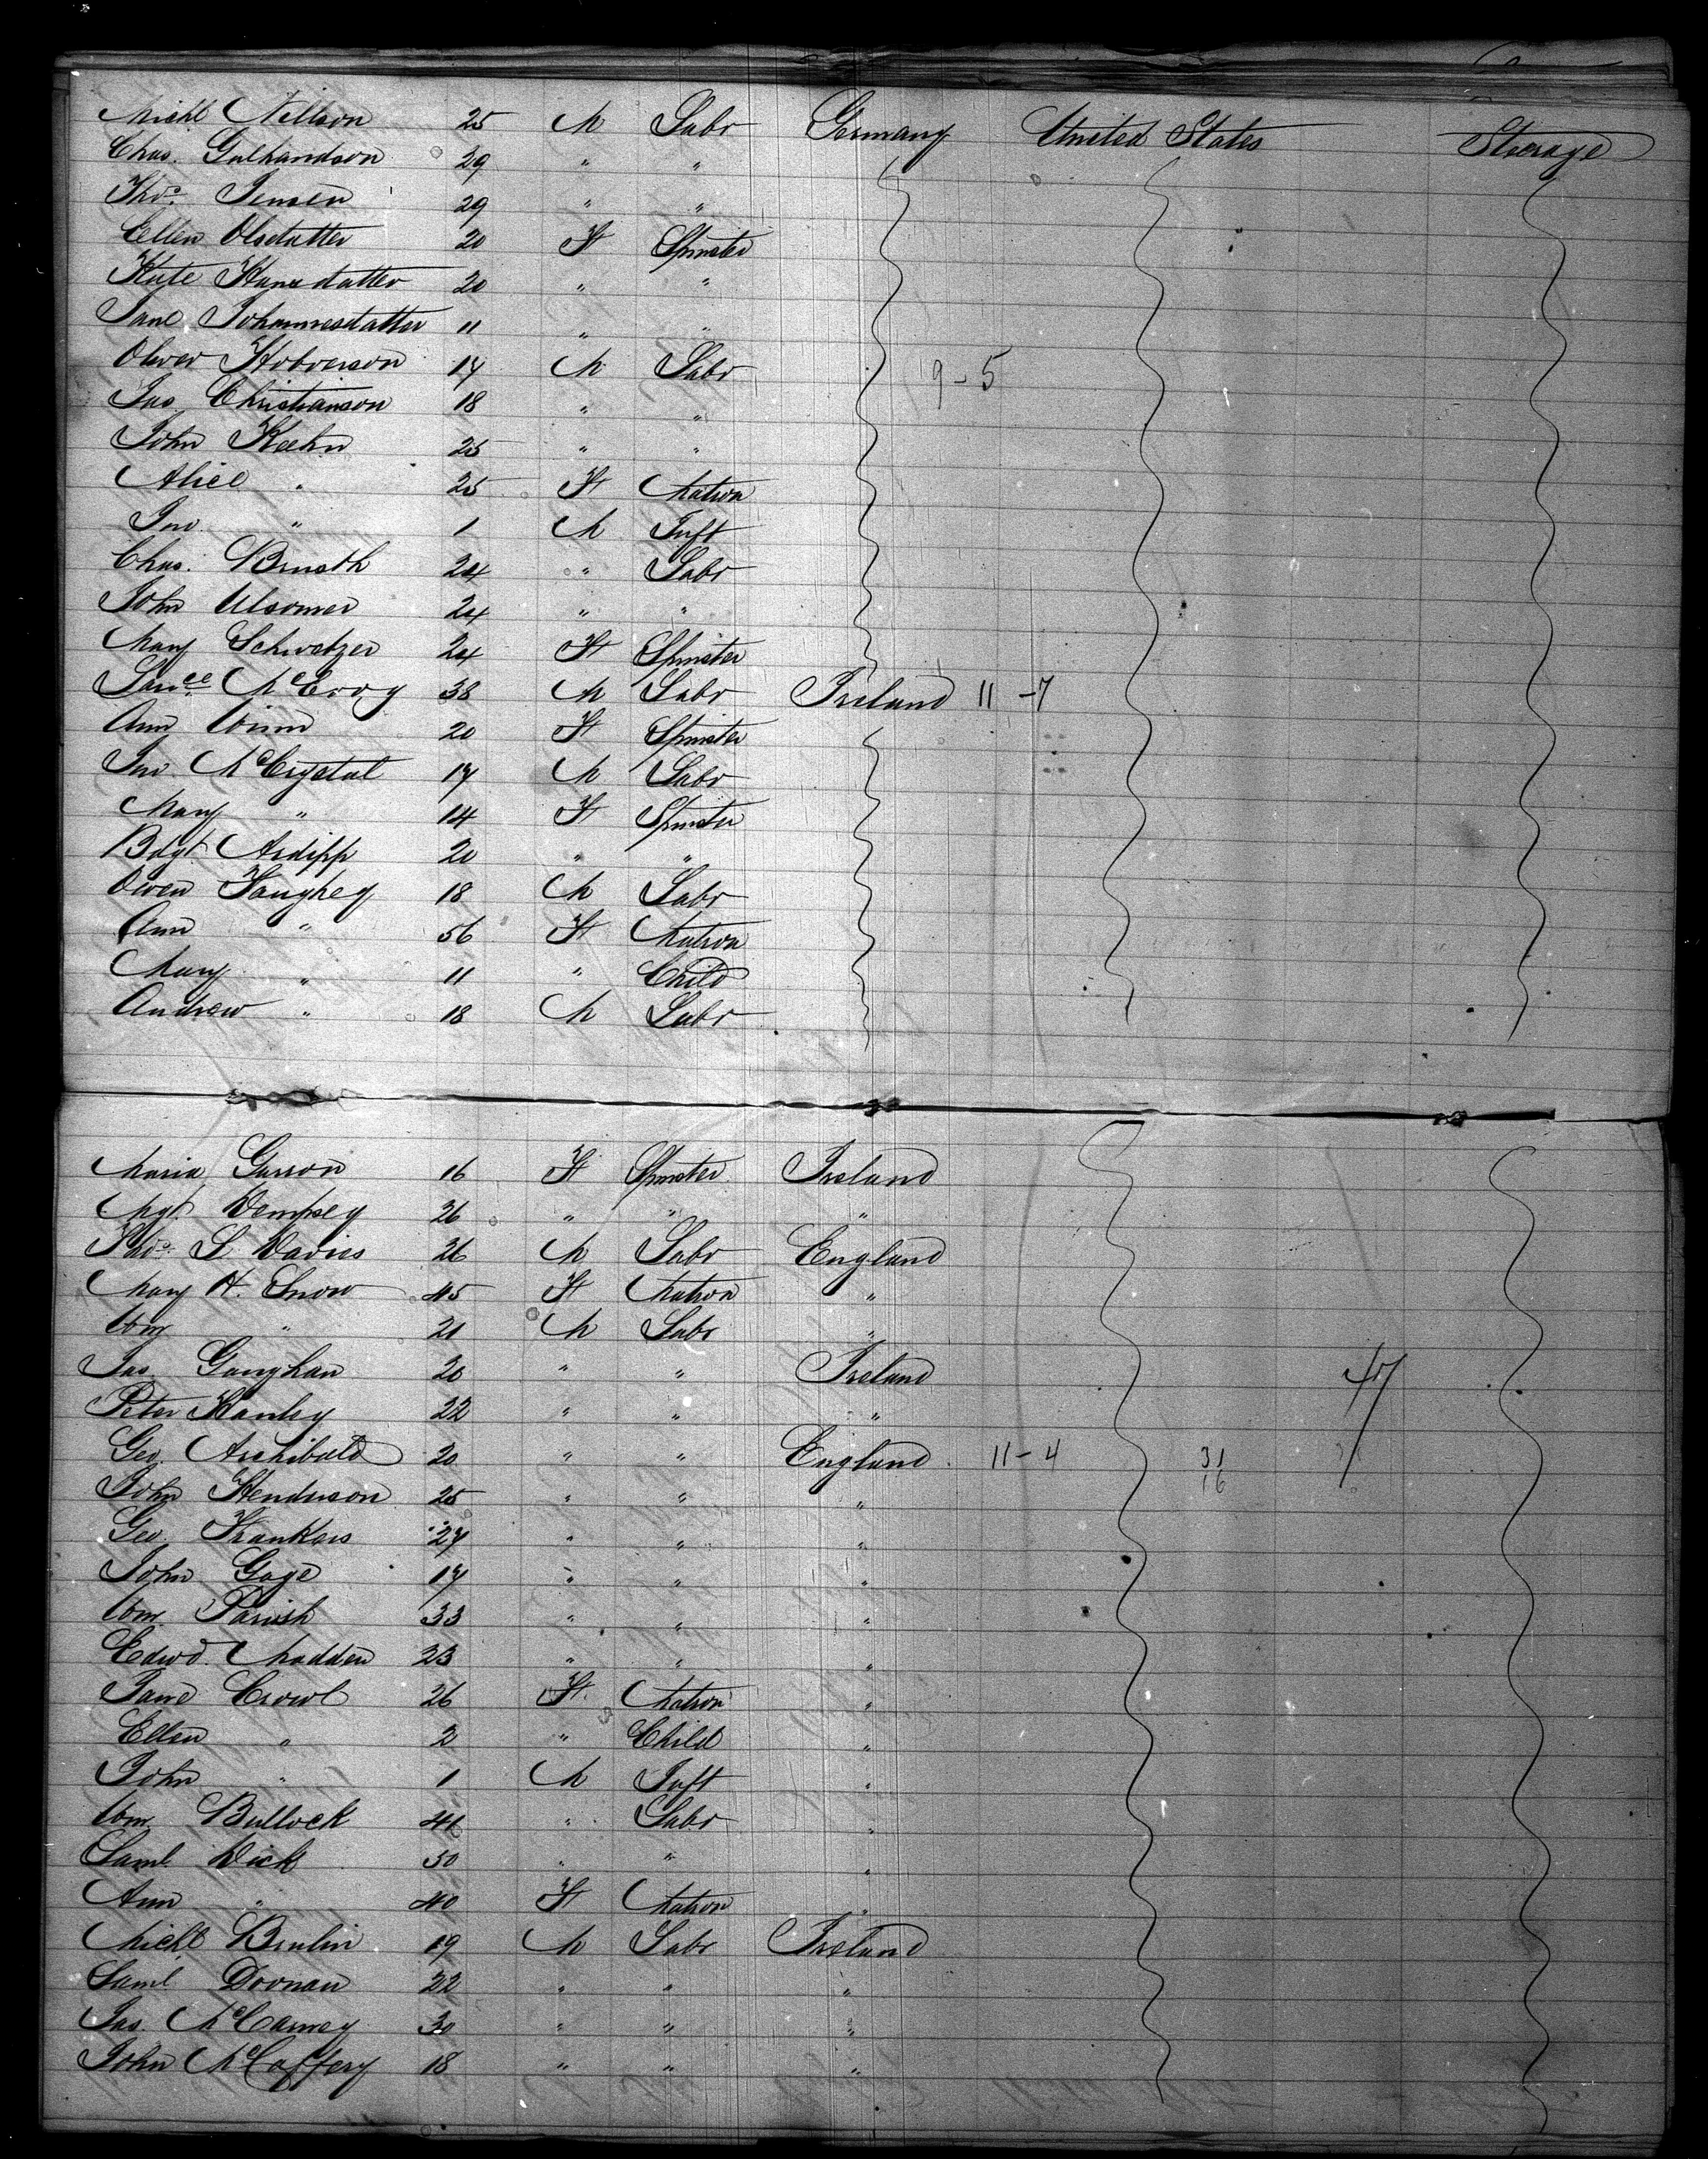 Michl Nillson 25 M Labr Germany United States Steerage
Chas. Gulhandson 29 " "
Thos. Jensen 29 " "
Ellen Olsdatter 20 F Spinster
Kate Hansdatter 20 " "
Jane Johannesdatter 11 " "
Oliver Halverson 17 M Labr 9-5
Jas Christianson 18 " "
John Keehn 25 " "
Alice " 25 F Matron
Jno. " 1 M Inft
Chas. Brusth 24 " Labr
John Ulsomer 24 " "
Mary Schwatzer 24 F Spinster
Lawce McEvoy 38 M Labr Ireland 11-7
Ann Winn 20 F Spinster
Jno. McCrystal 17 M Labr
Mary " 14 F Spinster
Bdgt Ardipp 20 " "
Owen Faughey 18 M Labr
Ann " 56 F Matron
Mary " 11 " Child
Andrew " 18 M Labr
Maria Garron 16 F Spinster Ireland
Mgt. Dempsey 26 " " "
Thos. L Davies 26 M Labr England
Mary H. Snow 45 F Matron "
Wm " 21 M Labr "
Jas. Gaughan 20 " " Ireland
Peter Hanley 22 " " "
Geo. Archibald 20 " " England 11-4 31
John Henderson 25 " " " 16
Geo. Frankers 27 " " "
John Gage 17 " " "
Wm Parish 33 " " "
Edwd. Madden 23 " " "
Jane Crowl 26 F Matron "
Ellen " 2 " Child "
John " 1 M Inft "
Wm Bullock 41 " Labr "
Saml Dick 30 " " "
Ann " 40 F Matron "
Michl Brulin 19 M Labr Ireland
Saml Doonan 22 " " "
Jas. McCamey 30 " " "
John McCaffery 18 " " "